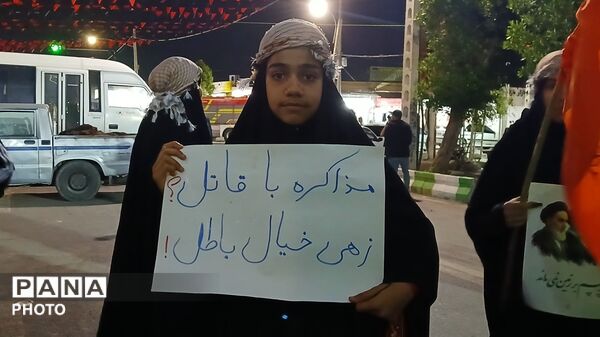 PANA
PHOTO
مذاکره با قاتل؟
زهی خیال باطل!
PANA
PHOTO